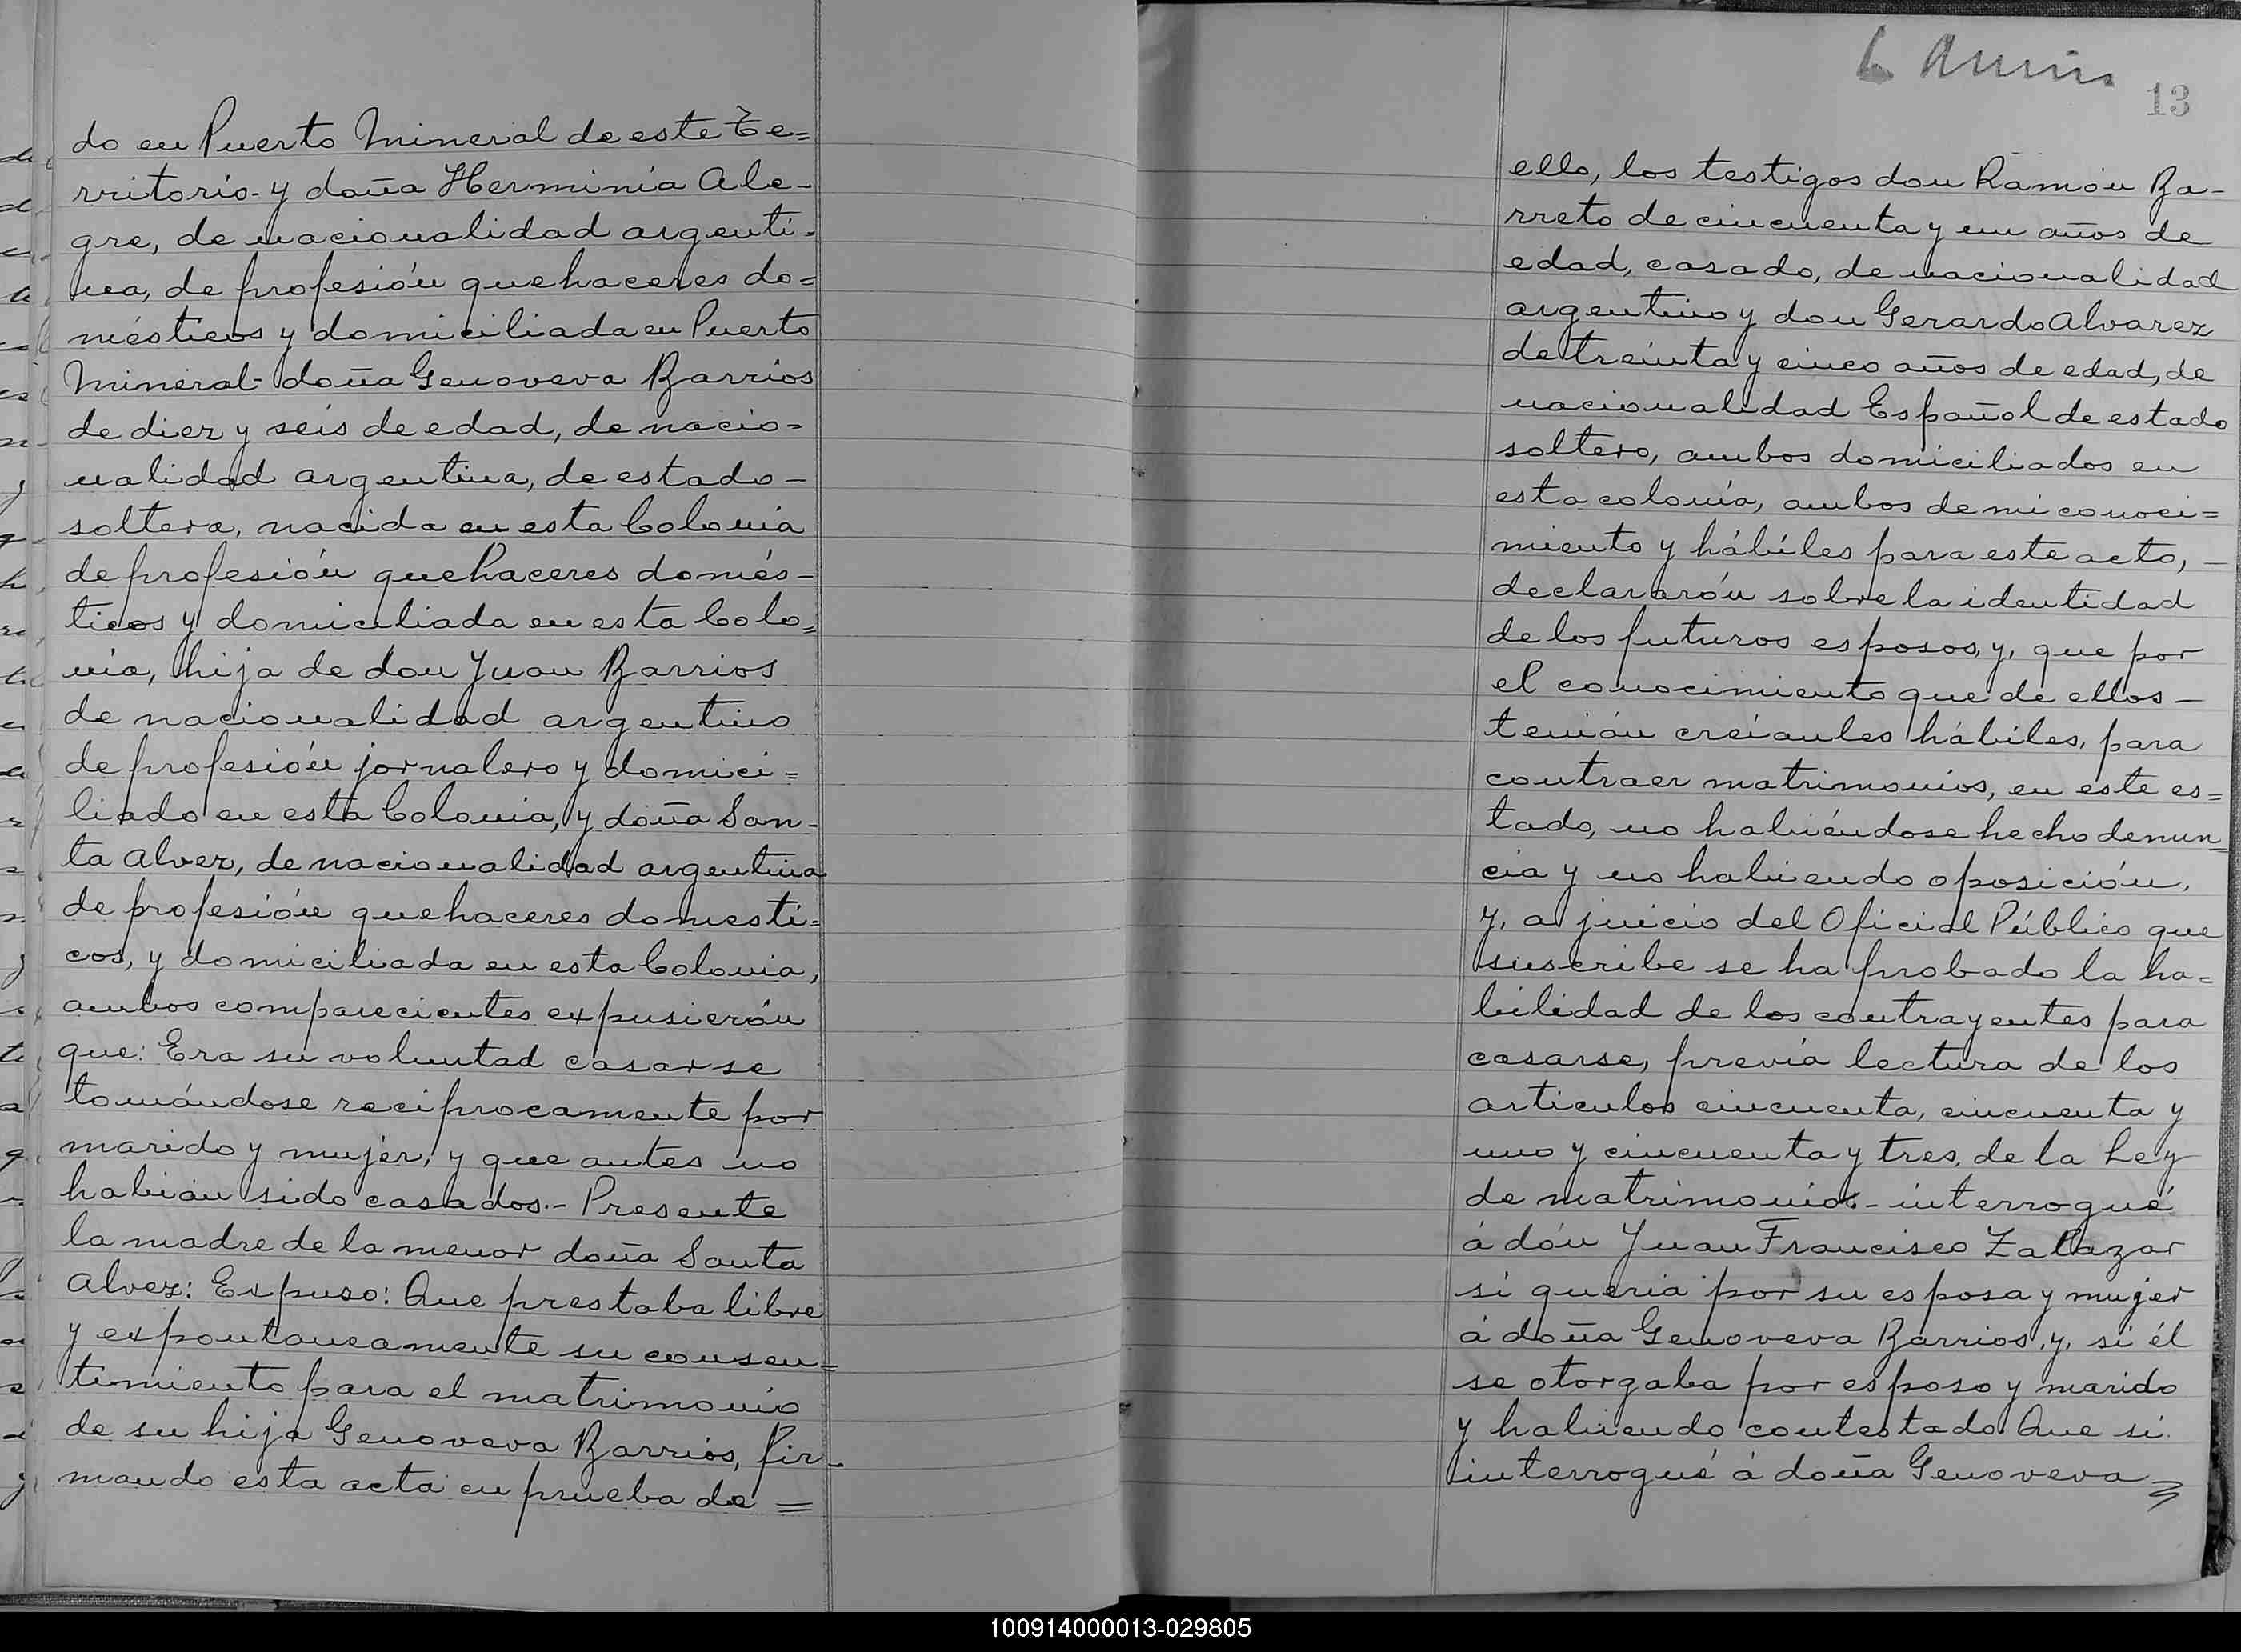 do en Puerto Mineral de este Te=
rritorio - y doña Herminia Ale-
gre, de nacionalidad argenti-
na, de profesión quehaceres do=
mésticos y domiciliada en Puerto
Mineral - doña Genoveva Barrios
de diez y seis de edad, de nacio=
nalidad argentina, de estado -
soltera, nacida en esta Colonia
de profesión quehaceres domés-
ticos y domiciliada en esta Colo=
nia, hija de don Juan Barrios
de nacionalidad argentino
de profesión jornalero y domici=
liado en esta Colonia, y doña San-
ta Alvez, de nacionalidad argentina
de profesión quehaceres domesti=
cos, y domiciliada en esta Colonia,
ambos comparecientes expusierón
que: Era su voluntad casarse
tomándose reciprocamente por
marido y mujer, y que antes no
habian sido casados.- Presente
la madre de la menor doña Santa
Alvez: Expuso: Que prestaba libre
y expontaneamente su consen=
timiento para el matrimonio
de su hija Genoveva Barrios, fir-
mando esta acta en prueba de =
13
ello, los testigos don Ramón Ba-
rreto de cincuenta y un años de
edad, casado, de nacionalidad
argentino y don Gerardo Alvarez
de treinta y cinco años de edad, de
nacionalidad Español de estado
soltero, ambos domiciliados en
esta colonia, ambos de mi conoci=
miento y hábiles para este acto, -
declararón sobre la identidad
de los futuros esposos, y, que por
el conocimiento que de ellos -
tenián creíanles hábiles, para
contraer matrimonios, en este es=
tado, no habiéndose hecho denun=
cia y no habiendo oposición,
y, a juicio del Oficial Público que
suscribe se ha probado la ha=
bilidad de los contrayentes para
casarse, previa lectura de los
articulos cincuenta, cincuenta y
uno y cincuenta y tres, de la Ley
de matrimonio - interrogué
á dón Juan Francisco Zalazar
si queria por su esposa y mujer
á doña Genoveva Barrios, y, si él
se otorgaba por esposo y marido
y habiendo contestado Que si
interrogué á doña Genoveva =
100914000013-029805